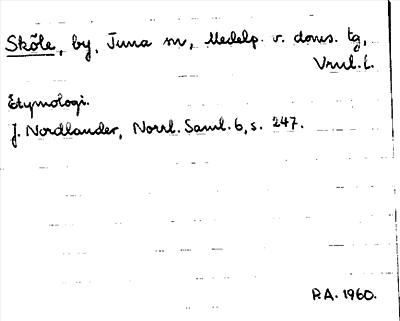 Sköle, by, Tuna sn, Medelp. v. doms. tg,
Vrnl. l.
Etymologi.
J. Nordlander, Norrl. Saml. 6, s. 247.
P.A. 1960.